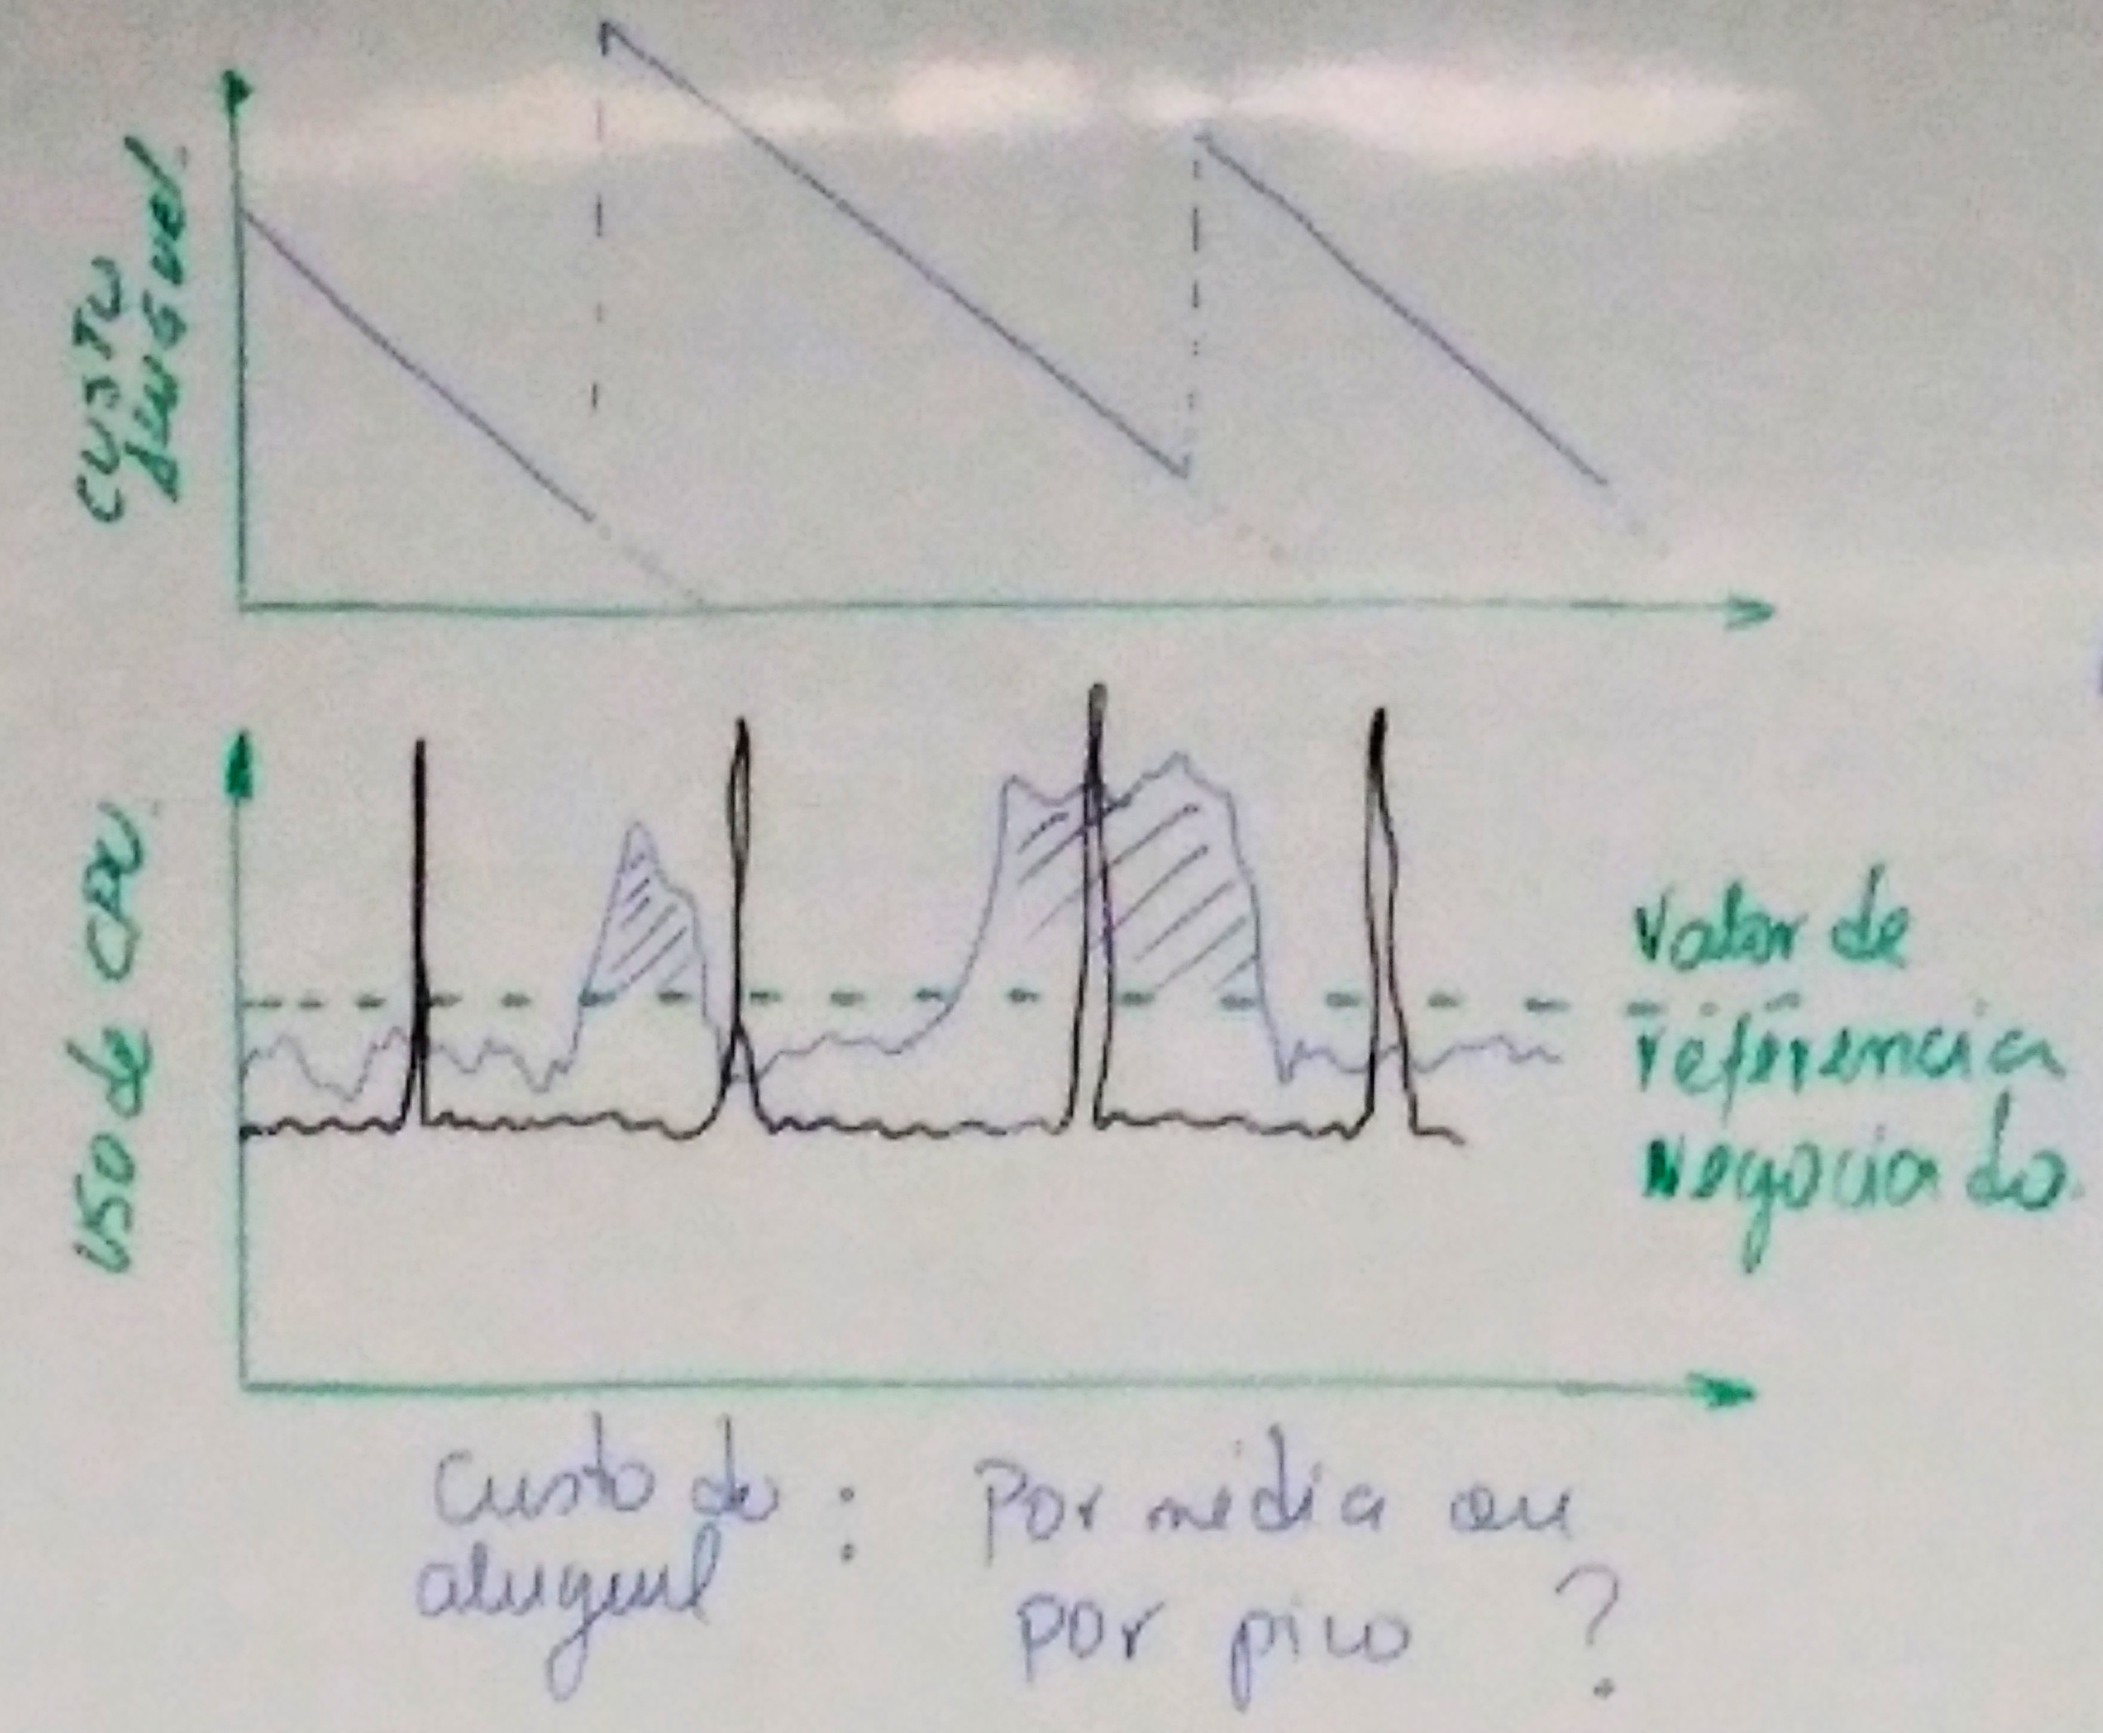 CUSTO
aluguel
USO de CPU
Valor de
referencia
Negociado
Custo do :
aluguel
Por média ou
por pico ?